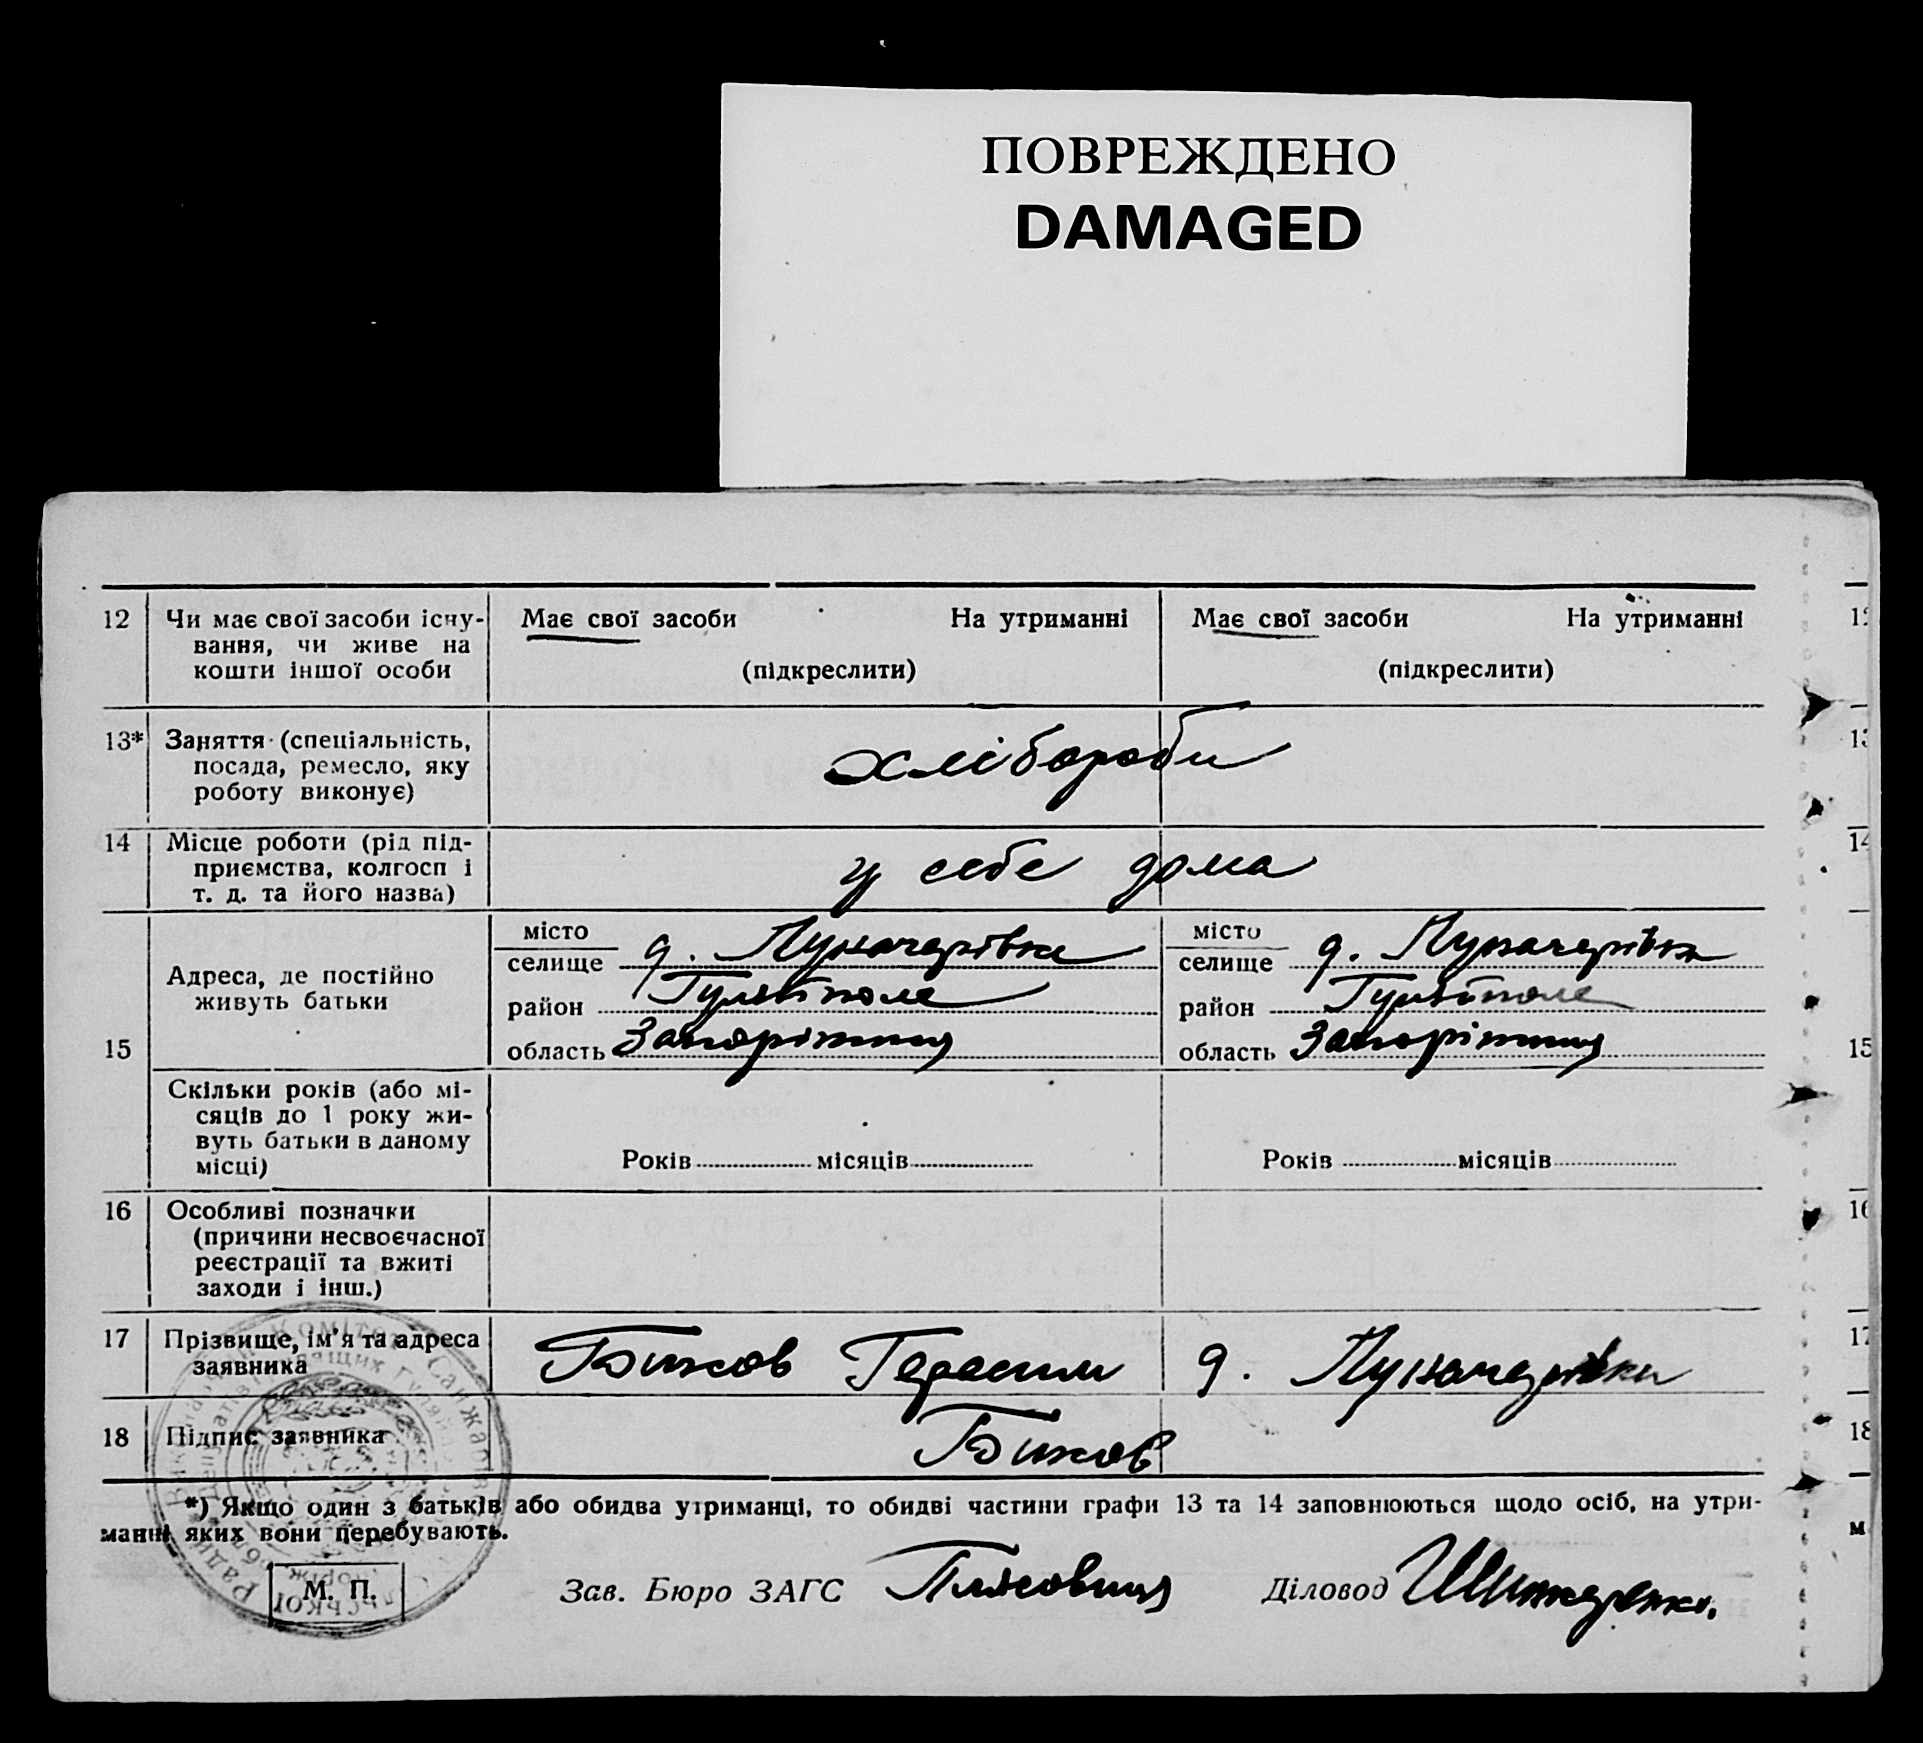 ПОВРЕЖДЕНО
DAMAGED
12 Чи має свої засоби існу-
вання, чи живе на
кошти іншої особи
Має свої засоби На утриманні
(підкреслити)
Має свої засоби На утриманні
(підкреслити)
13* Заняття (спеціальність,
посада, ремесло, яку
роботу виконує)
хлібороби
14 Місце роботи (рід під-
приємства, колгосп і
т. д. та його назва)
у себе дома
15 Адреса, де постійно
живуть батьки
місто
селище д. Луначарівка
район Гуляйполе
область Запоріжжя
місто
селище д. Луначарівка
район Гуляйполе
область Запоріжжя
Скільки років (або мі-
сяців до 1 року жи-
вуть батьки в даному
місці)
Років місяців
Років місяців
16 Особливі позначки
(причини несвоєчасної
реєстрації та вжиті
заходи і інш.)
17 Прізвище, ім'я та адреса
заявника
Биков Герасим д. Луначарівки
18 Підпис заявника
Биков
*) Якщо один з батьків або обидва утриманці, то обидві частини графи 13 та 14 заповнюються щодо осіб, на утри-
манні яких вони перебувають.
М. П.
Зав. Бюро ЗАГС
Діловод
12
13
14
15
16
17
18
м